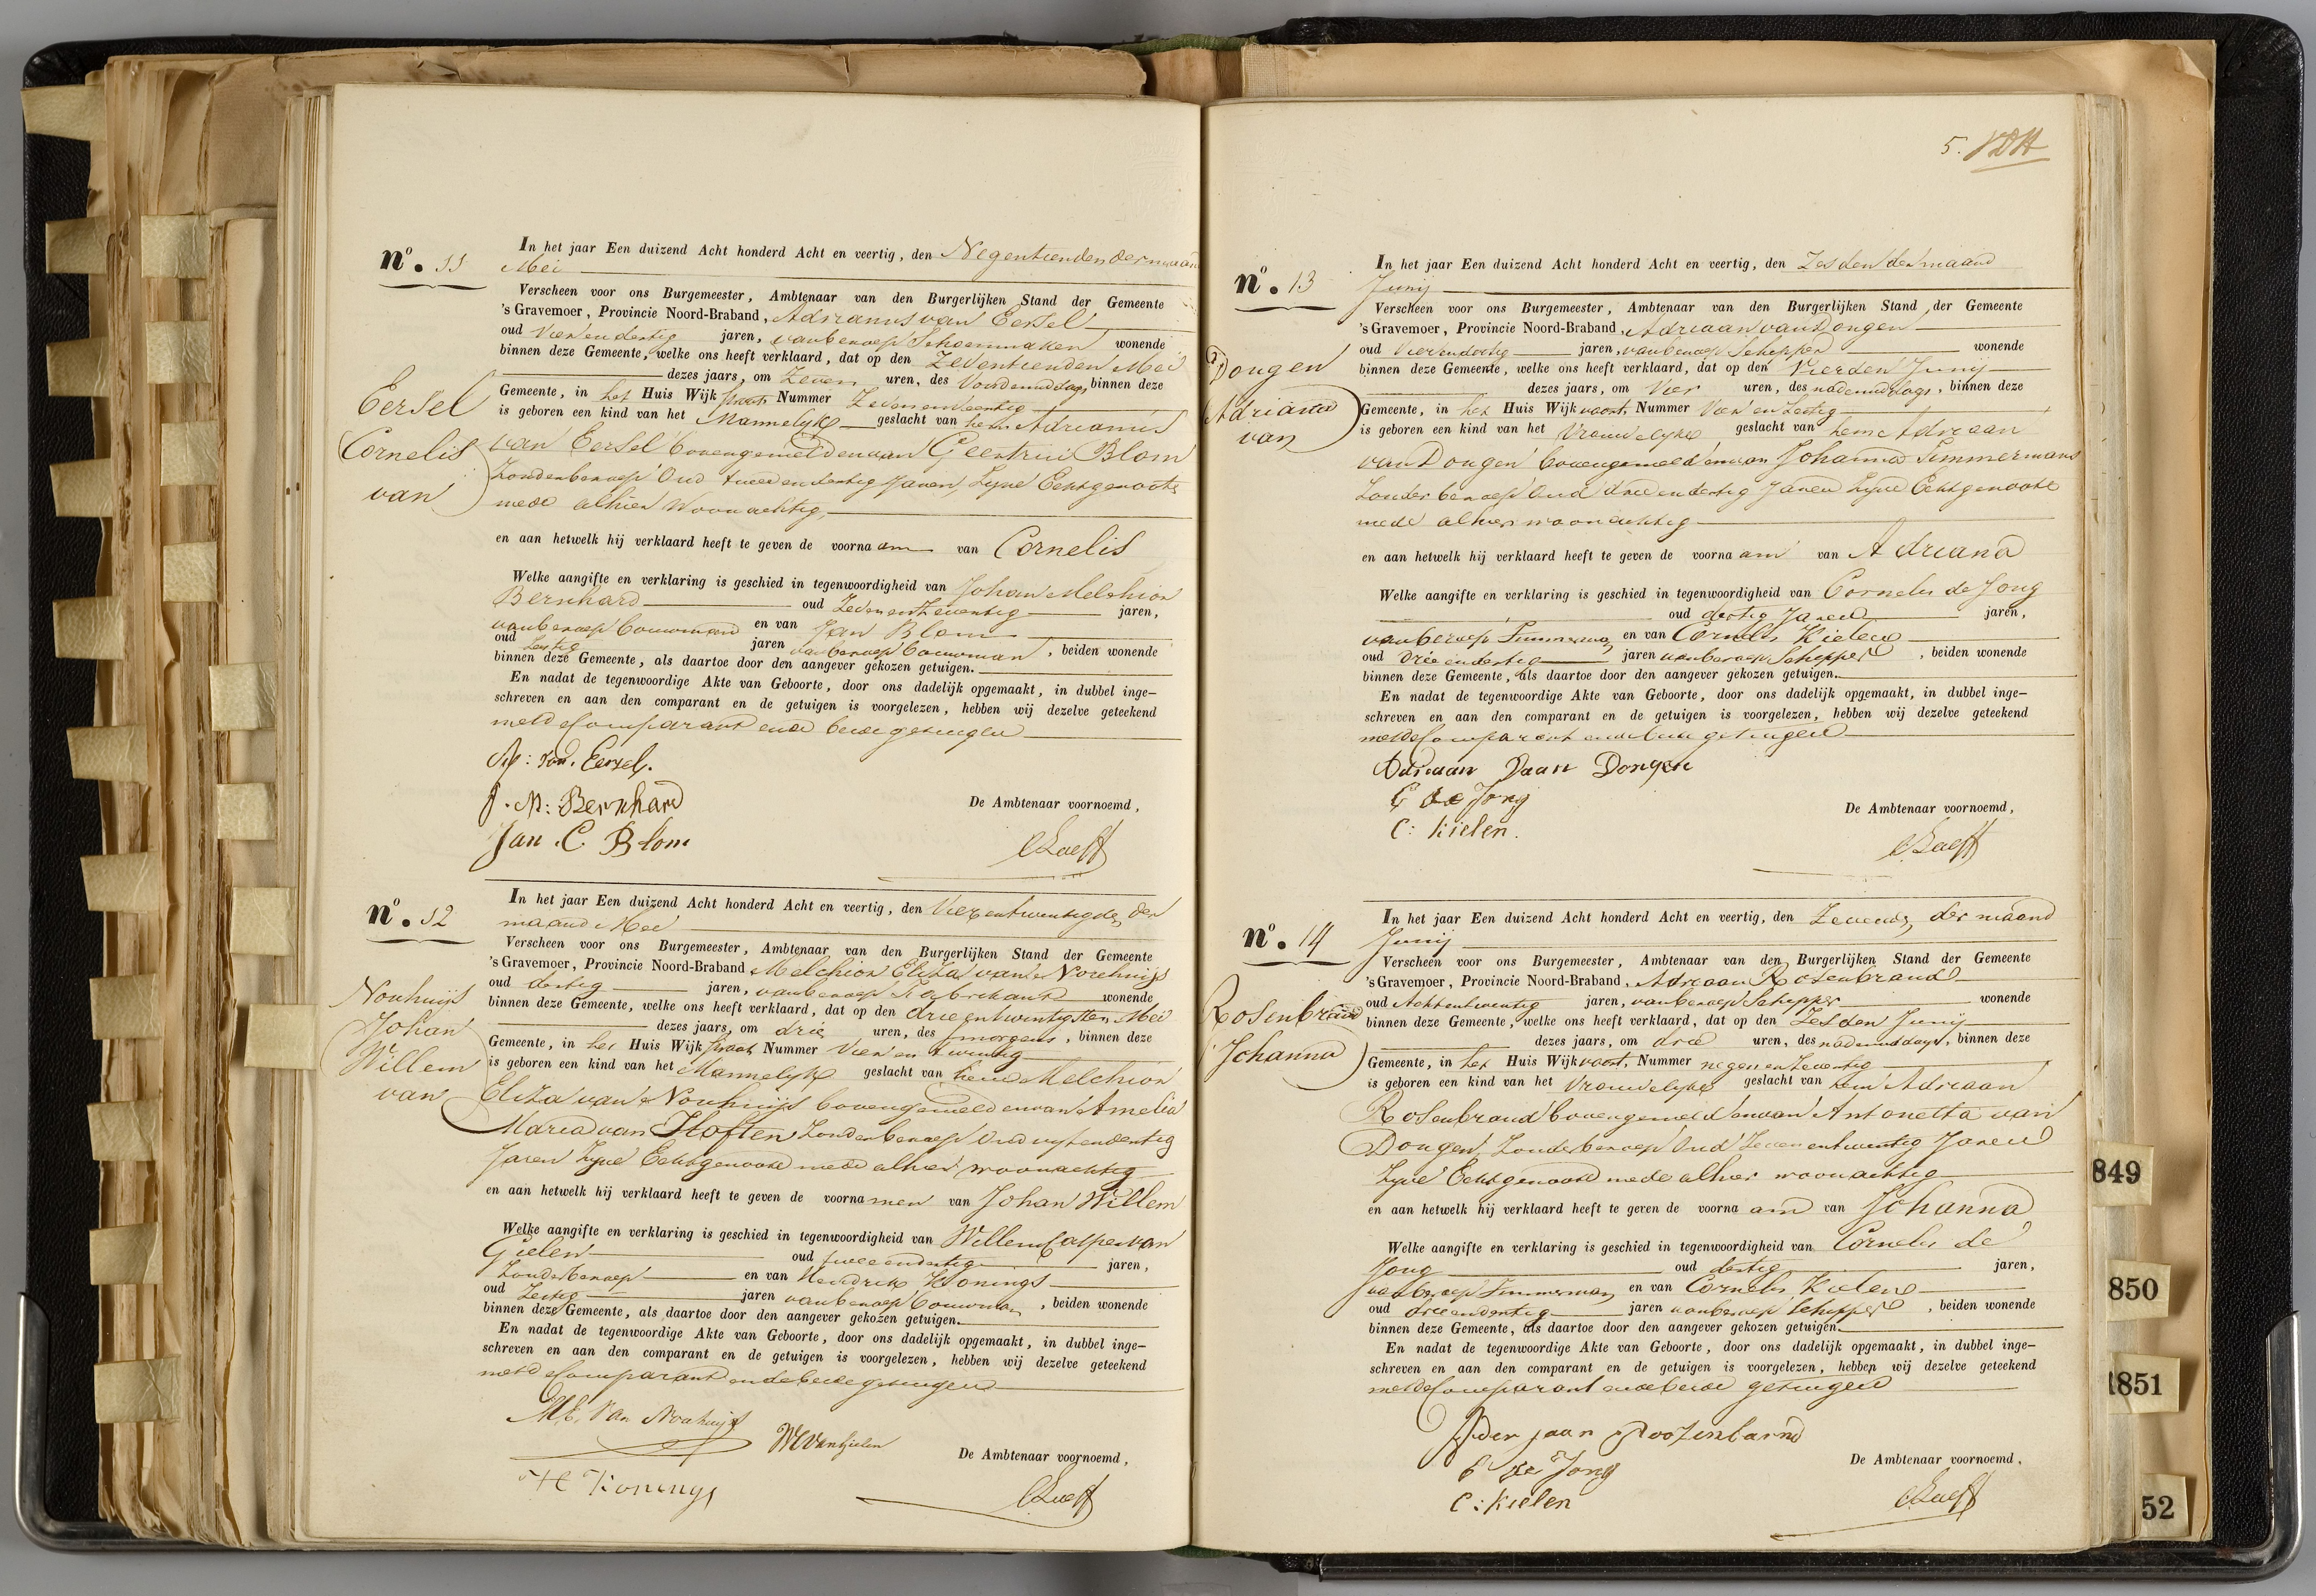 nº. 11
In het jaar Een duizend Acht honderd Acht en veertig, den Negentienden der maand
Mei
Verscheen voor ons Burgemeester, Ambtenaar van den Burgerlijken Stand der Gemeente
's Gravemoer, Provincie Noord-Braband, Adrianus van Eersel
oud Vier en dertig jaren, van beroep Schoenmaker wonende
binnen deze Gemeente, welke ons heeft verklaard, dat op den Zeventienden Mei
dezes jaars, om Zeven uren, des Voordemiddags, binnen deze
Gemeente, in het Huis Wijk straat Nummer
is geboren een kind van het Mannelyke geslacht van hem Adrianus
van Eersel bovengemeld en van Geertrui Blom
Zonder beroep Oud twee en dertig Jaren, Zyne Echtgenoote
mede alhier Woonachtig
Eersel
Cornelis
van
en aan hetwelk hij verklaard heeft te geven de voornaam van Cornelis
Welke aangifte en verklaring is geschied in tegenwoordigheid van Johan Melchior
Bernhard oud Zeven en Zeventig jaren,
van beroep bouwman en van Jan Blom
oud Zestig jaren van beroep bouwman, beiden wonende
binnen deze Gemeente, als daartoe door den aangever gekozen getuigen.
En nadat de tegenwoordige Akte van Geboorte, door ons dadelijk opgemaakt, in dubbel inge-
schreven en aan den comparant en de getuigen is voorgelezen, hebben wij dezelve geteekend
met de Comparant en de beide getuigen
van Eersel.
J. M: Bernhard
De Ambtenaar voornoemd,
Jan. C. Blom
nº. 12
In het jaar Een duizend Acht honderd Acht en veertig, den Vier en twintigde der
maand Mei
Verscheen voor ons Burgemeester, Ambtenaar van den Burgerlijken Stand der Gemeente
's Gravemoer, Provincie Noord-Braband Melchior Eliza van Nouhuijs
oud dertig jaren, van beroep Fabrikant wonende
binnen deze Gemeente, welke ons heeft verklaard, dat op den drie en twintigsten Mei
dezes jaars, om drie uren, des smorgens, binnen deze
Gemeente, in het Huis Wijk straat Nummer Vier en twintig
is geboren een kind van het Mannelyke geslacht van hem Melchior
Eliza van Nouhuijs bovengemeld en van Amelia
Maria van Hoften Zonder beroep Oud vyf en dertig
Jaren Zyne Echtgenoote mede alhier woonachtig
Nouhuijs
Johan
Willem
van
en aan hetwelk hij verklaard heeft te geven de voornamen van Johan Willem
Welke aangifte en verklaring is geschied in tegenwoordigheid van Willem Casper van
Gielen oud twee en dertig jaren,
Zonder beroep en van Hendrik Konings
oud Zestig jaren van beroep bouwman, beiden wonende
binnen deze Gemeente, als daartoe door den aangever gekozen getuigen.
En nadat de tegenwoordige Akte van Geboorte, door ons dadelijk opgemaakt, in dubbel inge-
schreven en aan den comparant en de getuigen is voorgelezen, hebben wij dezelve geteekend
met de Comparant en de beide getuigen
ME. Van Nouhuijs
WC van Gielen
De Ambtenaar voornoemd,
H Konings
5.
nº. 13
In het jaar Een duizend Acht honderd Acht en veertig, den Zesden der maand
Junij
Verscheen voor ons Burgemeester, Ambtenaar van den Burgerlijken Stand der Gemeente
's Gravemoer, Provincie Noord-Braband, Adriaan van Dongen
oud Vier en dertig jaren, van beroep Schipper wonende
binnen deze Gemeente, welke ons heeft verklaard, dat op den Vierden Junij
dezes jaars, om Vier uren, des nademiddags, binnen deze
Gemeente, in het Huis Wijk vaart, Nummer Vier en Zestig
is geboren een kind van het Vrouwelyke geslacht van hem Adriaan
van Dongen bovengemeld en van Johanna Timmermans
Zonder beroep Oud drie en dertig Jaren Zyne Echtgenoote
mede alhier woonachtig
Dongen
Adriana
van
en aan hetwelk hij verklaard heeft te geven de voornaam van Adriana
Welke aangifte en verklaring is geschied in tegenwoordigheid van Cornelis de Jong
oud dertig Jaren jaren,
van beroep Timmerman en van Cornelis Kielen
oud drie en dertig jaren van beroep Schipper, beiden wonende
binnen deze Gemeente, als daartoe door den aangever gekozen getuigen.
En nadat de tegenwoordige Akte van Geboorte, door ons dadelijk opgemaakt, in dubbel inge-
schreven en aan den comparant en de getuigen is voorgelezen, hebben wij dezelve geteekend
met de Comparant en de beide getuigen
Adriaan Vaan Dongen
C de Jong
De Ambtenaar voornoemd,
C: Kielen.
nº. 14
In het jaar Een duizend Acht honderd Acht en veertig, den Zevende der maand
Junij
Verscheen voor ons Burgemeester, Ambtenaar van den Burgerlijken Stand der Gemeente
's Gravemoer, Provincie Noord-Braband, Adriaan Rosenbrand
oud Acht en twintig jaren, van beroep Schipper wonende
binnen deze Gemeente, welke ons heeft verklaard, dat op den Zesden Junij
dezes jaars, om drie uren, des nademiddags, binnen deze
Gemeente, in het Huis Wijk vaart, Nummer negen en Zeventig
is geboren een kind van het Vrouwelyke geslacht van hem Adriaan
Rosenbrand bovengemeld en van Antonetta van
Dongen, Zonder beroep Oud Zeven en twintig Jaren
Zyne Echtgenoote mede alhier woonachtig
Rosenbrand
Johanna
en aan hetwelk hij verklaard heeft te geven de voornaam van Johanna
Welke aangifte en verklaring is geschied in tegenwoordigheid van Cornelis de
Jong oud dertig jaren,
van beroep Timmerman en van Cornelis Kielen
oud drie en dertig jaren van beroep Schipper, beiden wonende
binnen deze Gemeente, als daartoe door den aangever gekozen getuigen.
En nadat de tegenwoordige Akte van Geboorte, door ons dadelijk opgemaakt, in dubbel inge-
schreven en aan den comparant en de getuigen is voorgelezen, hebben wij dezelve geteekend
met de Comparant en de beide getuigen
Ader jaan Roozenbarnd
C de Jong
De Ambtenaar voornoemd,
C: Kielen
849
850
1851
52